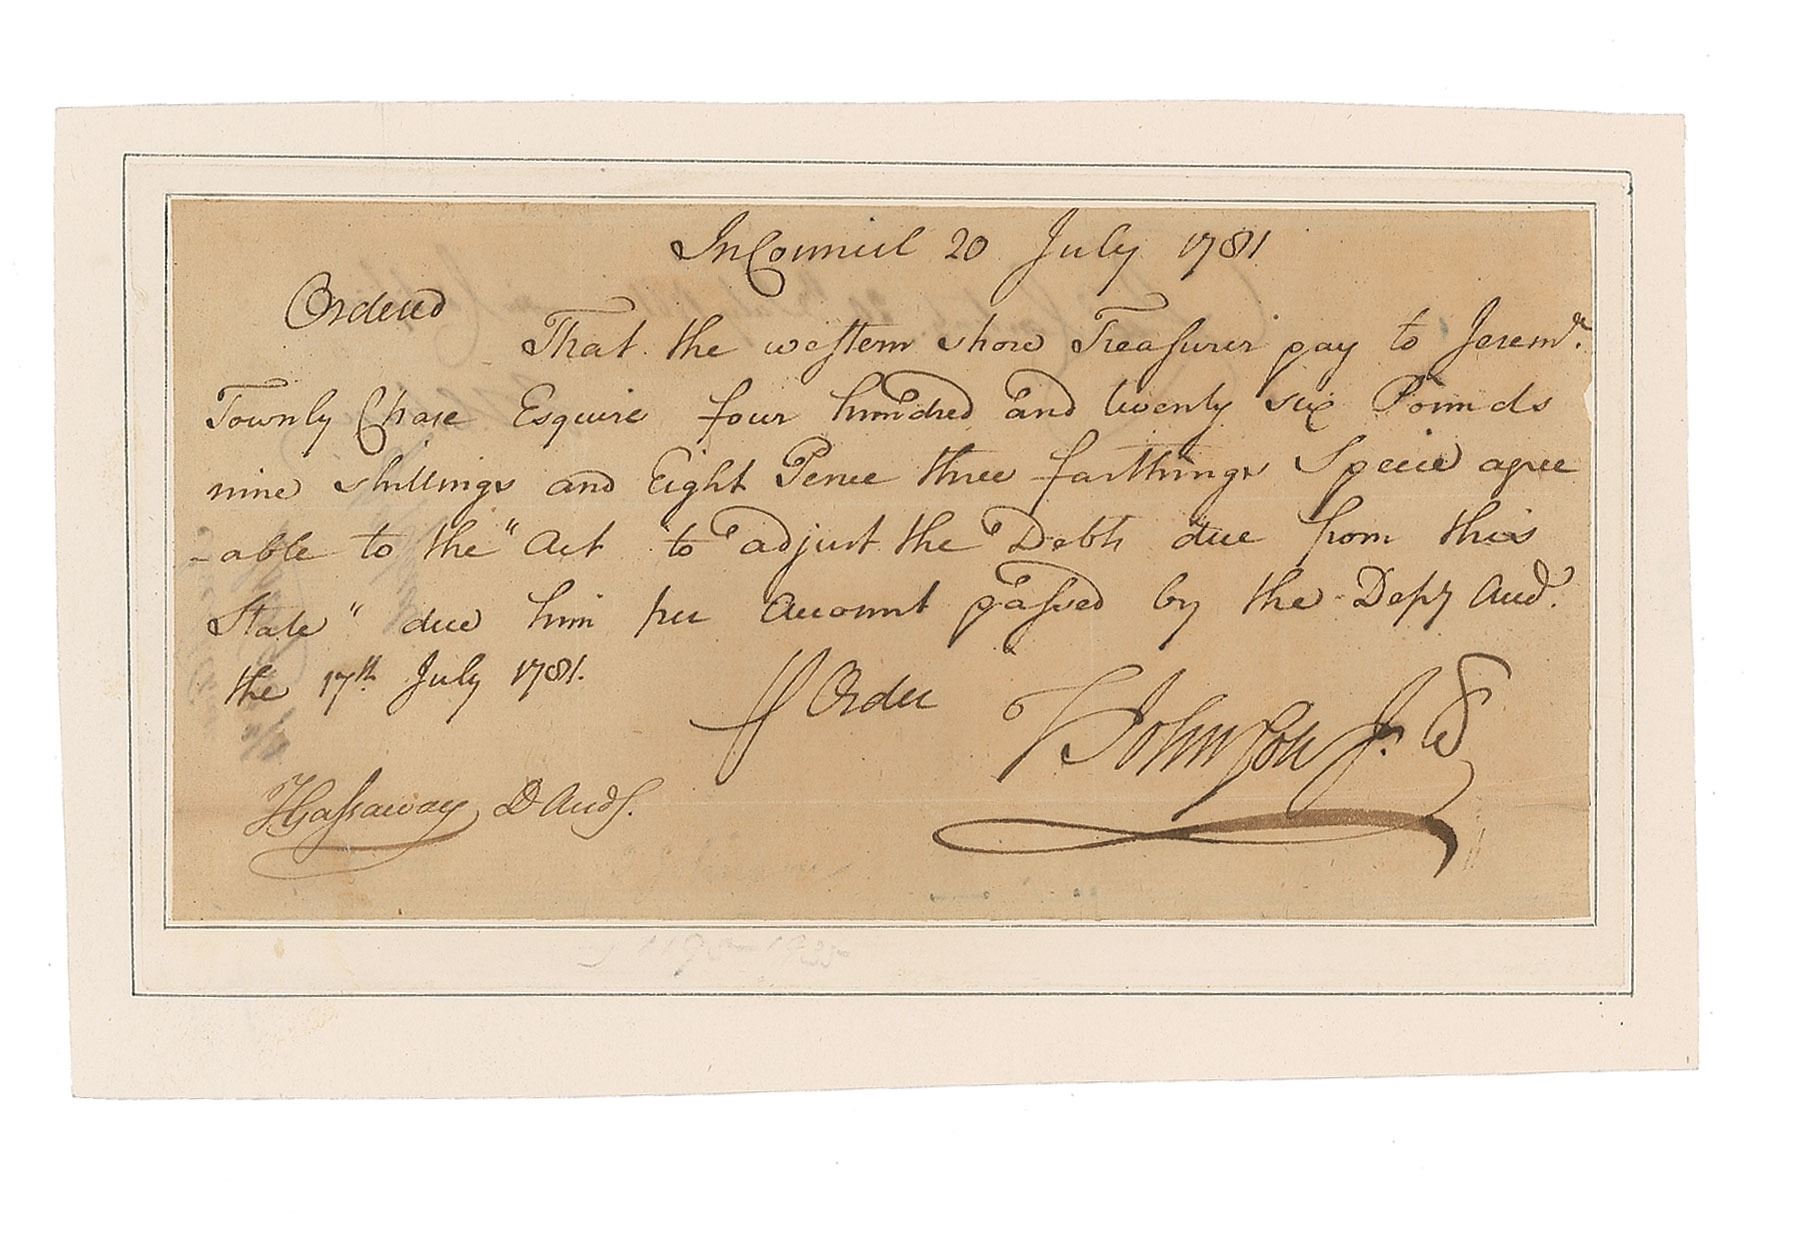 In Council 20 July 1781
Ordered
That the western shore Treasurer pay to Jerem.h
Townly Chase Esquire four hundred and twenty six Pounds
nine shillings and Eight Pence three farthings Specie agree
-able to the "Act to adjust the Debts due from this
State" due him per Account passed by the Depy Aud.r
the 17th July 1781.
p Order
T Johnson Jr. Cl
J Hassaway D Aud.